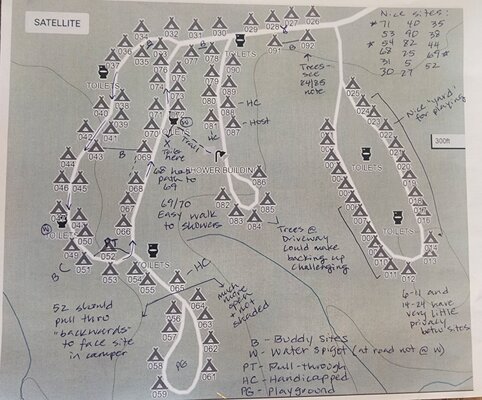 SATELLITE
Nice sites:
* 71 40 35
53 90 38
* 54 82 44
68 25 69 *
31 5 52
30 27
034
033
032
031
030
029
028
027
026
TOILETS
091
092
B
Trees -
see
84/85
note
037
036
035
TOILETS
038
039
040
041
042
043
B
044
045
046
047
TOILETS
W
048
049
050
051
B
PT
052
053
054
055
TOILETS
HC
079
078
077
076
075
074
073
072
071
TOILETS
W
070
069
068
067
066
X
Tribs
here
Trail
68 has
path to
69
69/70
Easy walk
to showers
SHOWER BUILDING
090
089
088
087
HC
Host
HC
080
081
082
083
084
085
086
Trees @
Driveway
could make
backing up
challenging
025
024
023
022
021
020
019
018
017
016
015
014
013
012
011
010
009
008
007
006
TOILETS
TOILETS
Nice "yard"
for playing
300ft
065
064
063
062
061
056
057
058
059
PG
much
more
open
+ not
shaded
52 should
pull thro
"backwards"
to face site
in camper
6-11 and
14-24 have
very little
privacy
betw sites
B - Buddy Sites
W - Water Spigot (at road not @ W)
PT - Pull-through
HC - Handicapped
PG - Playground